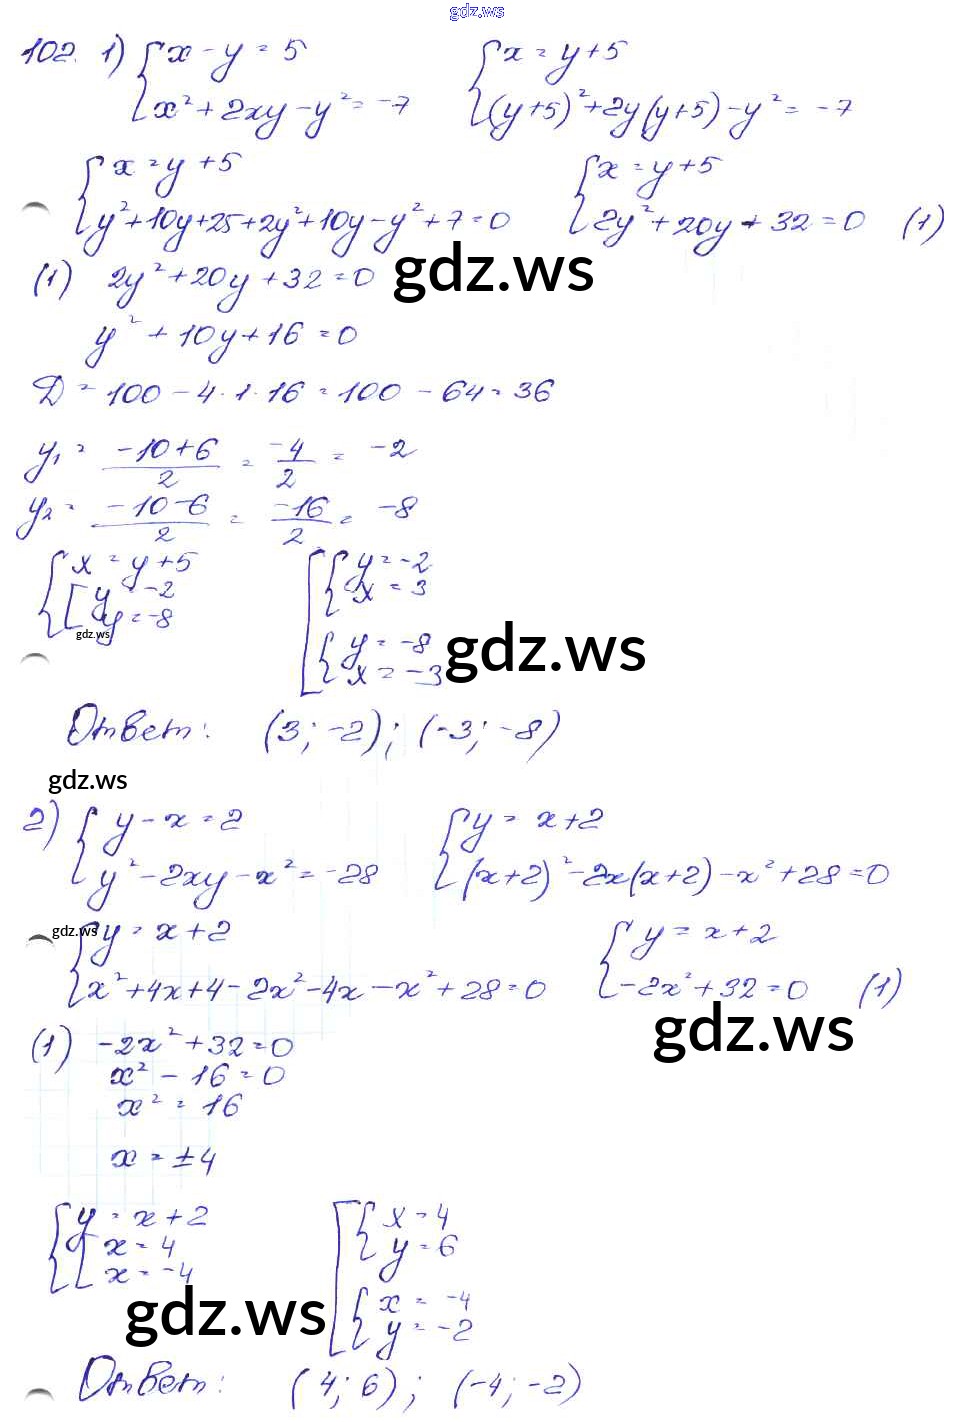 gdz.ws
102. 1) { x - y = 5    { x = y + 5
{ x² + 2xy - y² = -7    { (y+5)² + 2y(y+5) - y² = -7
{ x = y + 5    { x = y + 5
{ y² + 10y + 25 + 2y² + 10y - y² + 7 = 0    { 2y² + 20y + 32 = 0    (1)
gdz.ws
(1) 2y² + 20y + 32 = 0
y² + 10y + 16 = 0
D = 100 - 4·1·16 = 100 - 64 = 36
y₁ = (-10+6)/2 = -4/2 = -2
y₂ = (-10-6)/2 = -16/2 = -8
{ x = y + 5    [ { y = -2
{ [ y = -2    [ { x = 3
{ [ y = -8    [ { y = -8
gdz.ws    [ { x = -3
gdz.ws
Ответ: (3; -2); (-3; -8)
gdz.ws
2) { y - x = 2    { y = x + 2
{ y² - 2xy - x² = -28    { (x+2)² - 2x(x+2) - x² + 28 = 0
gdz.ws
{ y = x + 2    { y = x + 2
{ x² + 4x + 4 - 2x² - 4x - x² + 28 = 0    { -2x² + 32 = 0    (1)
gdz.ws
(1) -2x² + 32 = 0
x² - 16 = 0
x² = 16
x = ±4
{ y = x + 2    [ { x = 4
{ [ x = 4    [ { y = 6
{ [ x = -4    [ { x = -4
gdz.ws    [ { y = -2
Ответ: (4; 6); (-4; -2)